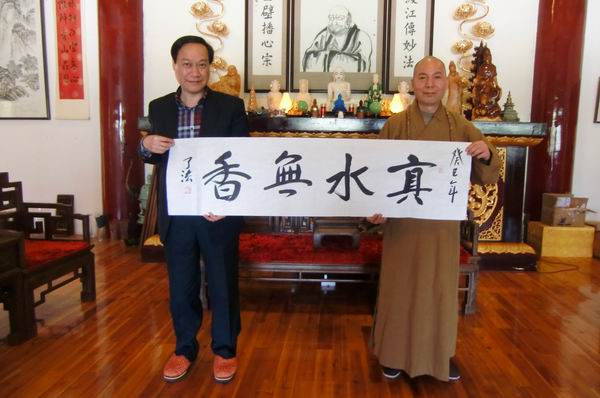 江傳妙法
壁播心宗
癸巳年
真水無香
了法